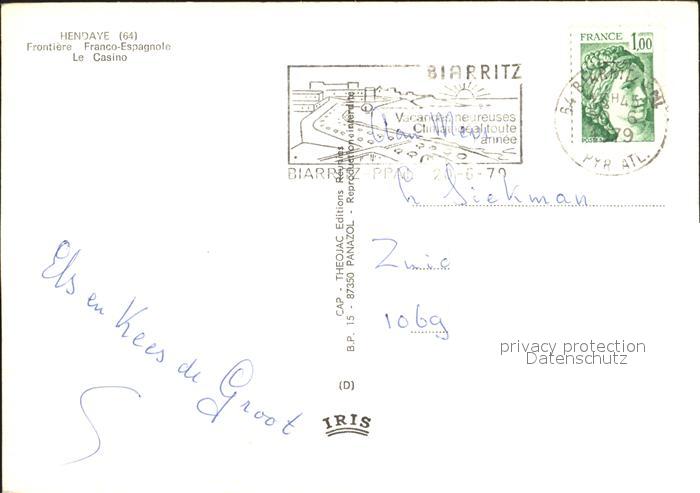 HENDAYE (64)
Frontière Franco-Espagnole
Le Casino
BIARRITZ
Vacances heureuses
Climat idéal toute
année
BIARRITZ-PPAL 20-6-79
FRANCE 1,00
POSTES
64 BIARRITZ
79
PYR ATL.
CAP - THEOJAC Editions Réunies
B.P. 15 - 87350 PANAZOL - Reproduction interdite
(D)
IRIS
Aan Mevr
Siekman
1069
Els en Kees de Groot
privacy protection
Datenschutz